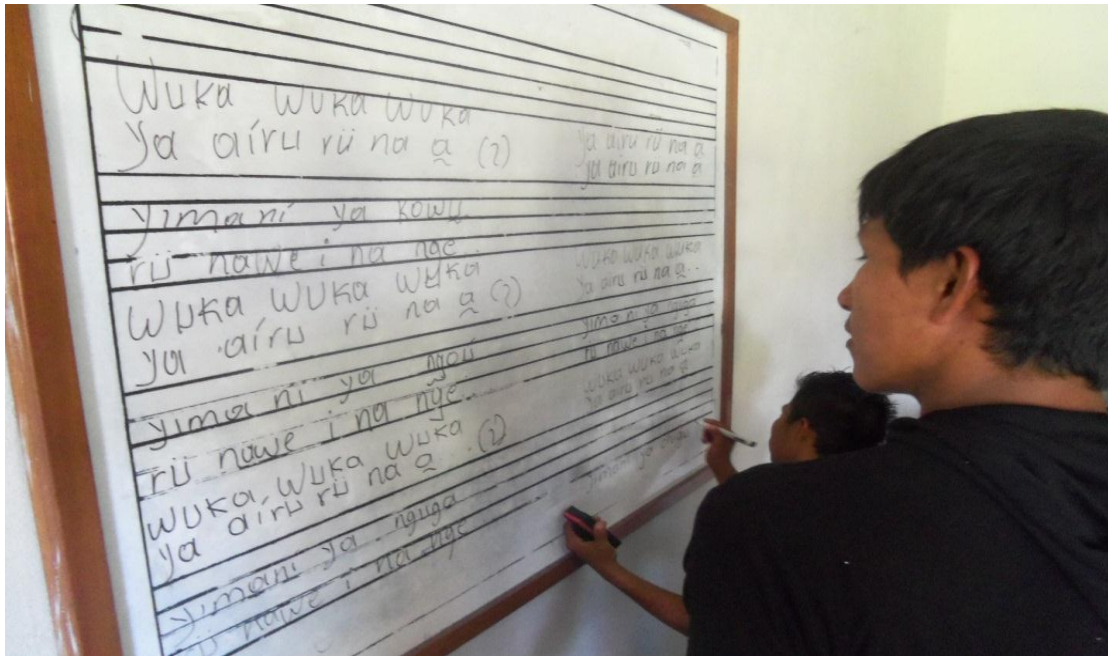 Wuka Wuka Wuka
ya aíru rü na a̰ (2)
yimani ya kowu
rü nawe i na nge
Wuka Wuka Wuka
ya aíru rü na a̰ (2)
yima ni ya ngoü
rü nawe i na nge
Wuka Wuka Wuka (2)
ya aíru rü na a̰
yimani ya nguga
rü nawe i na nge
ya airu rü na a̰
ya airu rü na a̰
Wuka Wuka Wuka
ya airu rü na a̰..
yima ni ya nguga
rü nawe i na nge
Wuka Wuka Wuka
ya airu rü na a̰
yimani ya